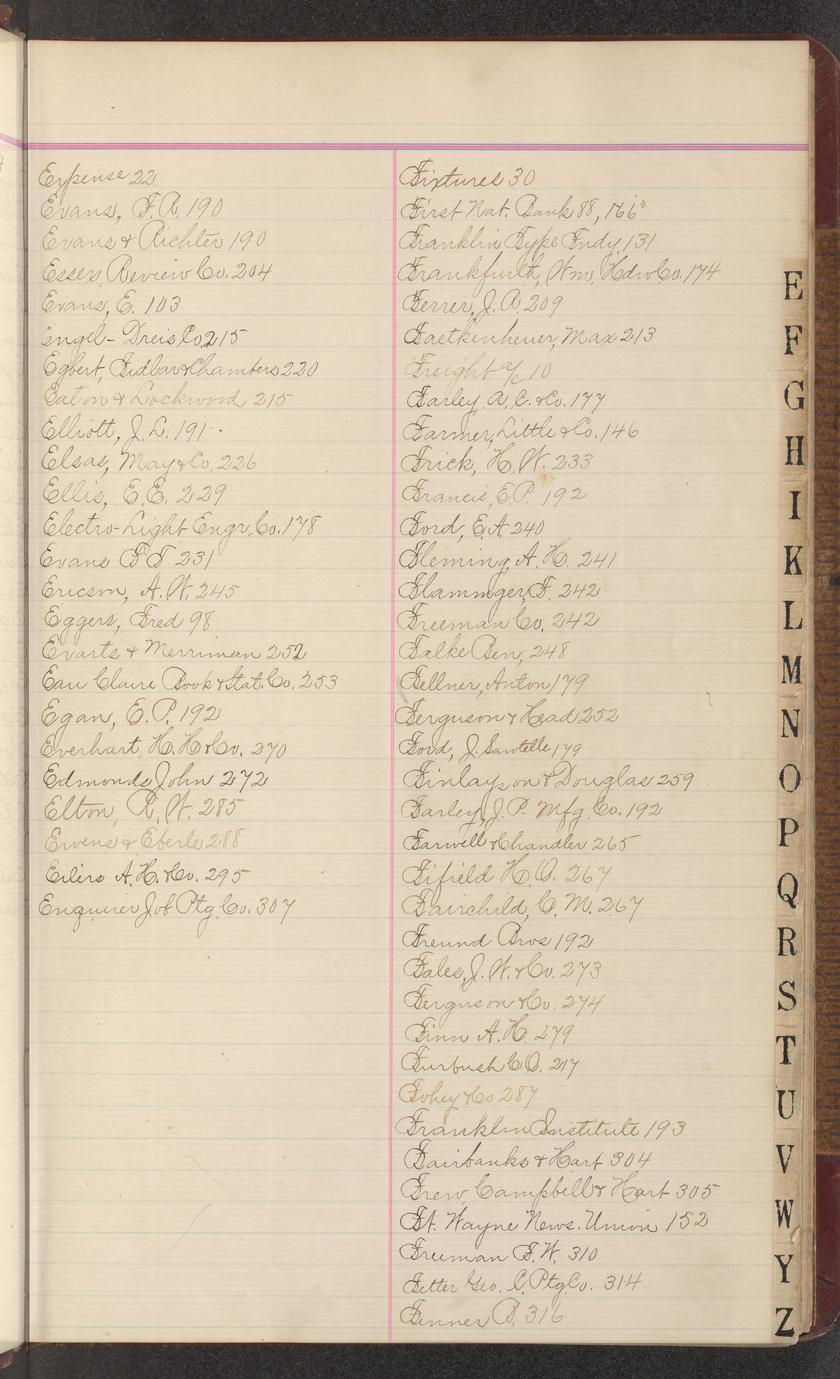 Expense 22
Evans, F. A. 190
Evans & Richter 190
Essex Review Co. 204
Evans, E. 103
Engel-Dreis Co. 215
Egbert, Fidlar & Chambers 220
Eaton & Lockwood 215
Elliott, J. L. 191
Elsas, May & Co. 226
Ellis, E. E. 229
Electro-Light Engr. Co. 178
Evans 231
Ericson, A. W. 245
Eggers, Fred 98
Evarts & Merriman 252
Eau Claire Book & Stat. Co. 253
Egan, E. P. 192
Everhart, H. H. & Co. 270
Edmonds John 272
Elton, R. W. 285
Ewens & Eberle 288
Eilers A. H. & Co. 295
Enquirer Job Ptg. Co. 307
Fixtures 30
First Nat. Bank 88, 166
Franklin Type Fndy. 131
Frankfurth, Wm. Hdw Co. 174
Ferrer, J. A. 209
Faetkenheuer, Max 213
Freight a/c 10
Farley, A. C. & Co. 177
Farmer, Little & Co. 146
Frick, H. W. 233
Francis, E. P. 192
Ford, E. A. 240
Fleming, A. H. 241
Flammger, F. 242
Freeman Co. 242
Falke Ben, 248
Fellner, Anton 179
Ferguson & Head 252
Ford, J. Sawtelle 179
Finlayson & Douglas 259
Farley, J. P. Mfg. Co. 192
Farwell & Chandler 265
Fifield H. O. 267
Fairchild, C. M. 267
Freund Bros 192
Fales, J. W. & Co. 273
Ferguson & Co. 274
Finn A. H. 279
Furbush C. O. 217
Fohey & Co 287
Franklin Institute 193
Fairbanks & Hart 304
Frew, Campbell & Hart 305
Ft. Wayne News. Union 152
Freeman F. W. 310
Fetter Geo. C. Ptg Co. 314
Fenner B. 316
E
F
G
H
I
K
L
M
N
O
P
Q
R
S
T
U
V
W
Y
Z